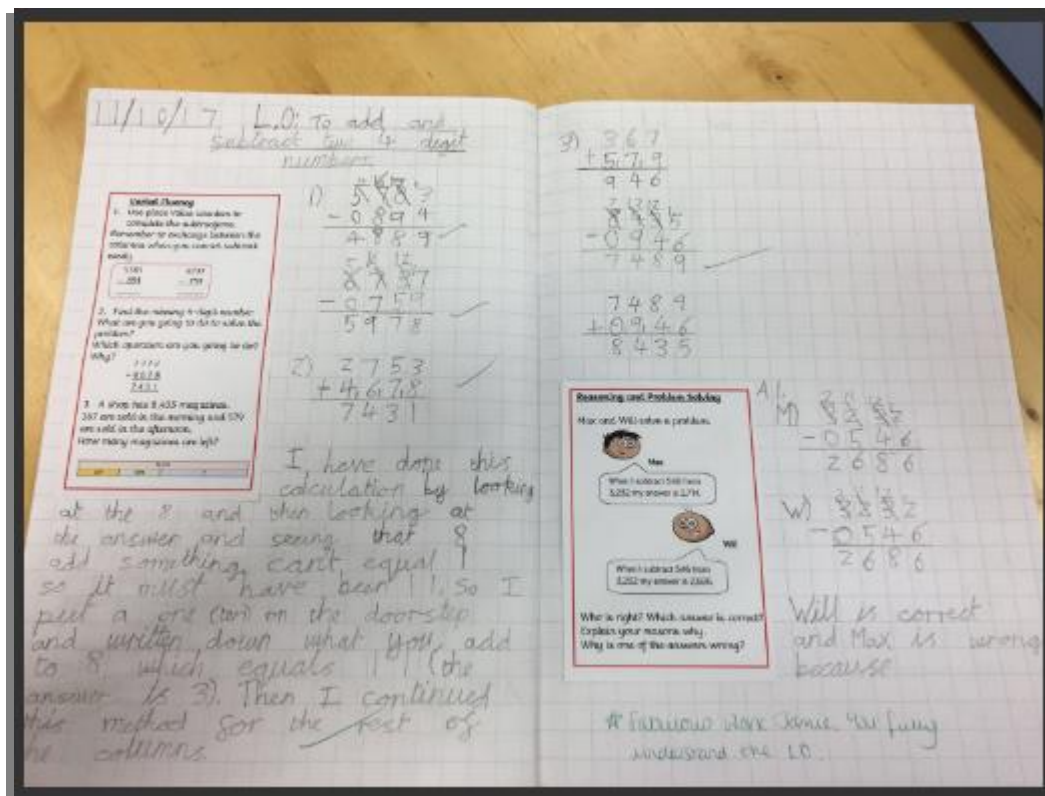 11/10/17 L.O: To add and
subtract two 4 digit
numbers
Varied Fluency
1. Use place value counters to
complete the subtractions.
Remember to exchange between the
columns when you cannot subtract
easily.
2. Find the missing 4-digit number.
What are you going to do to solve the
problem?
Which operation are you going to do?
Why?
????
- 4678
2431
3. A shop has 8,435 magazines.
367 are sold in the morning and 579
are sold in the afternoon.
How many magazines are left?
1)
- 0894
4889
- 0759
5978
2) 2753
+ 4678
7431
I have done this
calculation by looking
at the 8 and then looking at
the answer and seeing that 8
add something can't equal 1
so it must have been 11. So I
put a one (ten) on the doorstep
and written down what you add
to 8 which equals 11 (the
answer is 3). Then I continued
this method for the rest of
he columns
3) 367
+ 579
946
- 0946
7489
7489
+ 0946
8435
Reasoning and Problem Solving
Max and Will solve a problem.
Max
When I subtract 546 from
3,232 my answer is 2,714.
Will
When I subtract 546 from
3,232 my answer is 2,686.
Who is right? Which answer is correct?
Explain your reasons why.
Why is one of the answers wrong?
M)
- 0546
2686
W)
- 0546
2686
Will is correct
and Max is wrong
because
* Fabulous work Jamie. You fully
understand the LO.